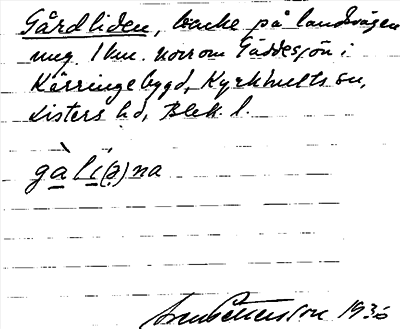 Gårdliden, backe på landsvägen
ung. 1 km. norr om Gäddesjön i
Kärringebygd, Kyrkhults sn,
Listers hd, Blek. l.
gàlı(ə)na
Pettersson 1935